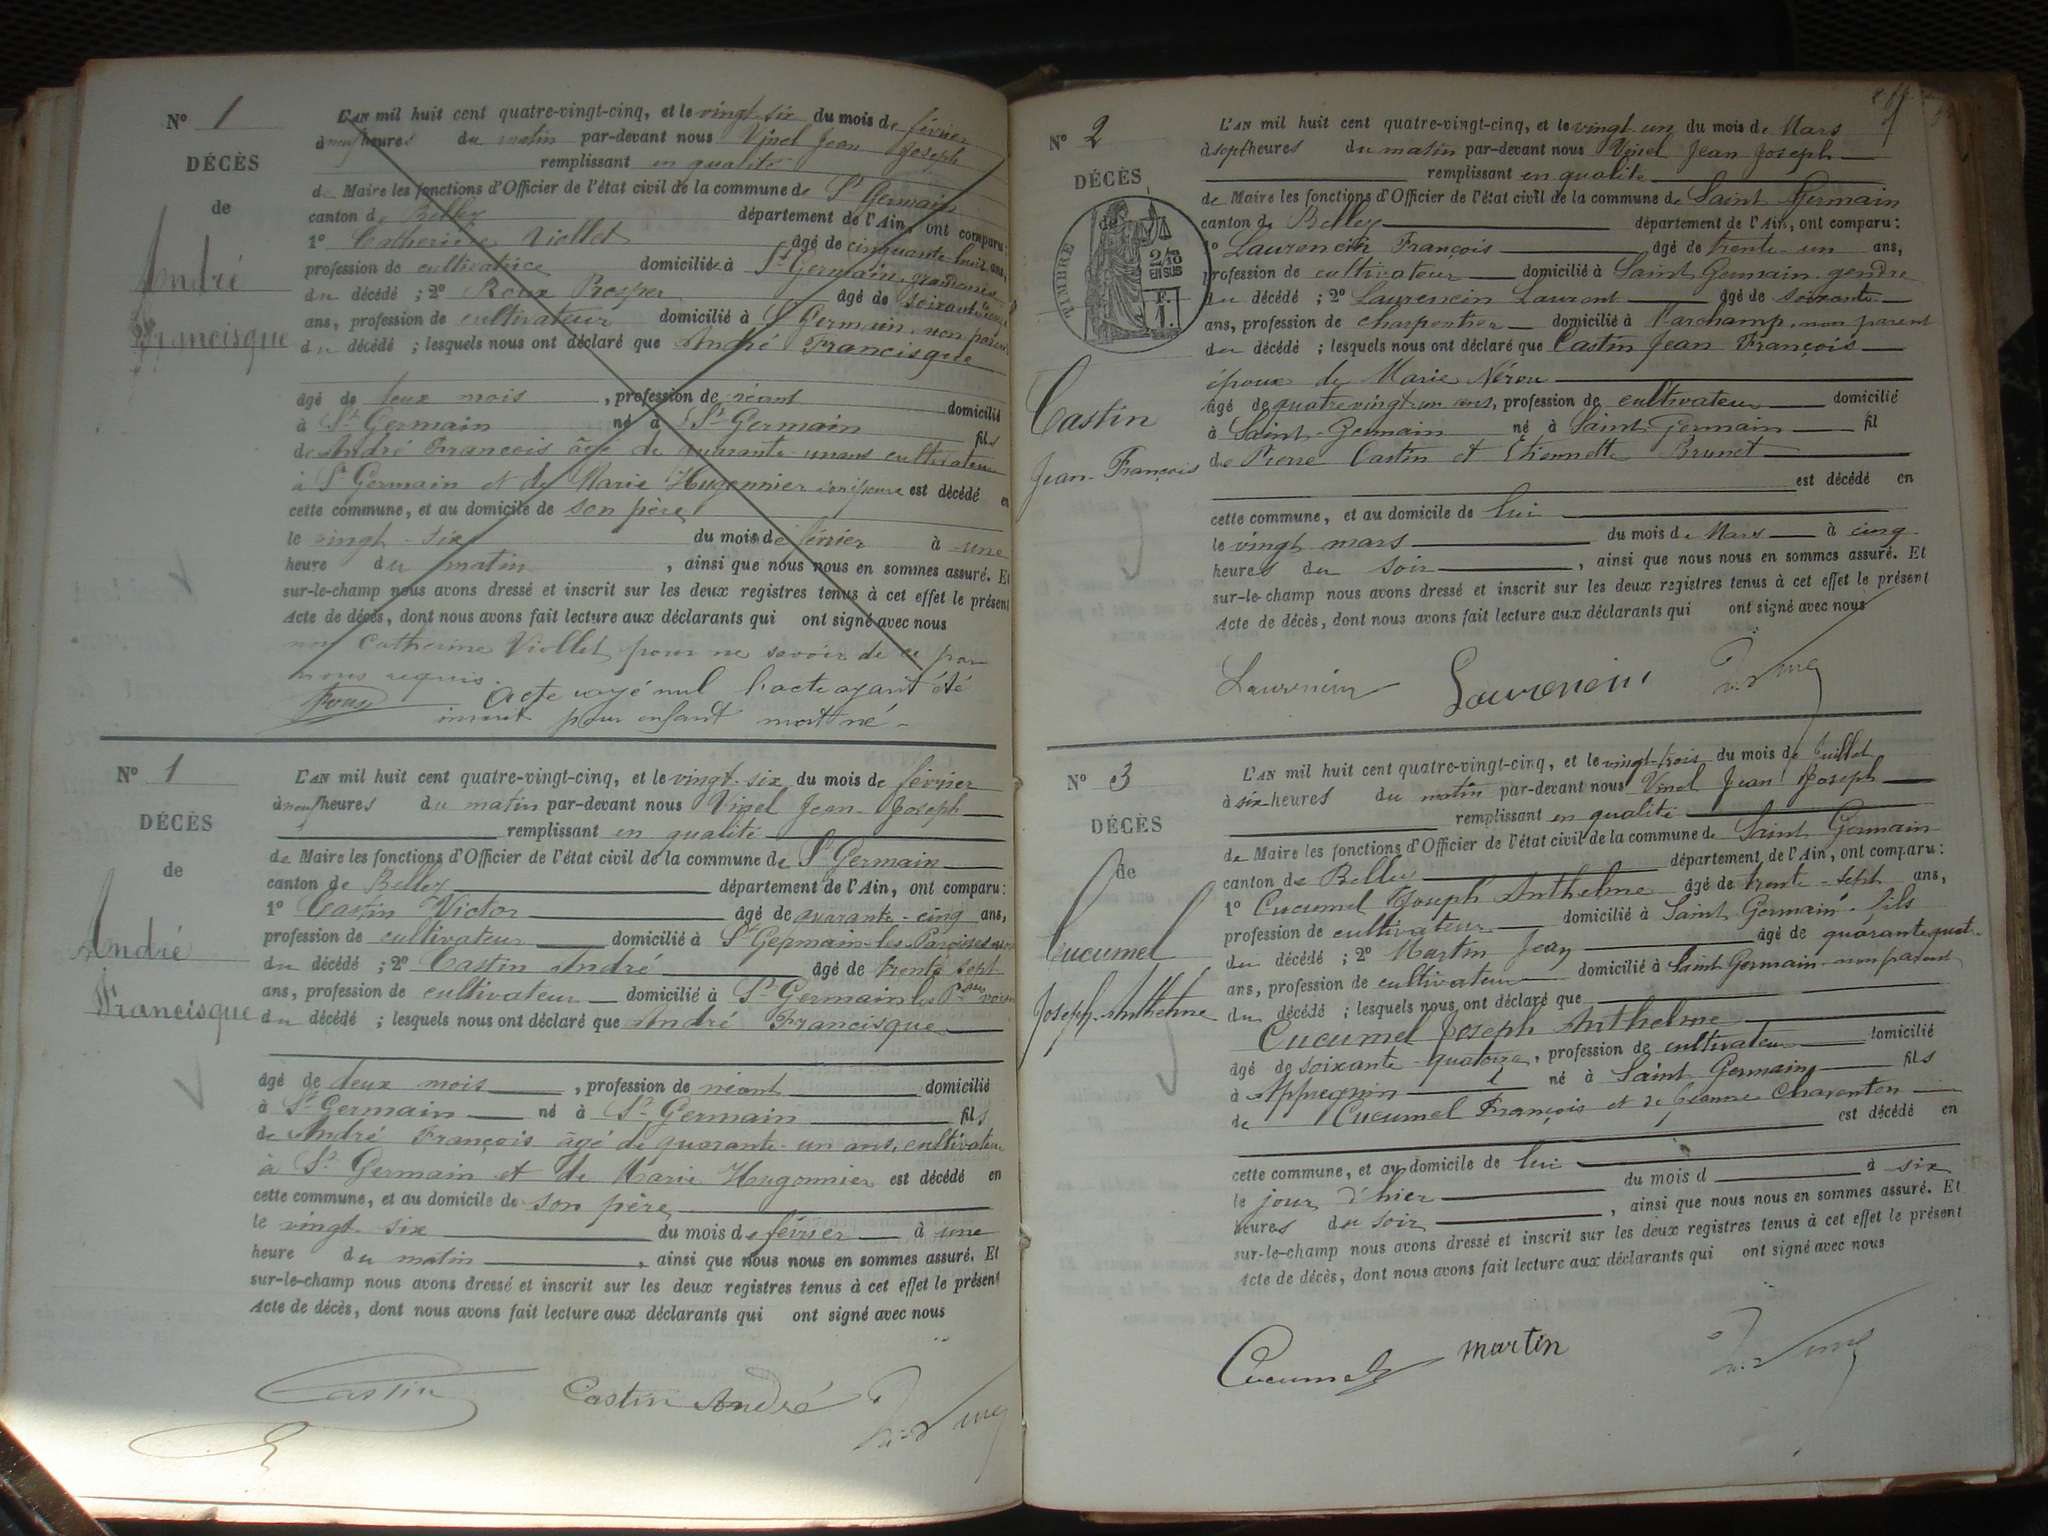 N° 1
DÉCÈS
de
André
Francisque
L'AN mil huit cent quatre-vingt-cinq, et le vingt-six du mois de février
à neuf heures du matin par-devant nous Vinel Jean Joseph
remplissant en qualité
de Maire les fonctions d'Officier de l'état civil de la commune de St Germain
canton de Belley département de l'Ain, ont comparu:
1° Catherine Viollet âgé de cinquante huit ans,
profession de cultivatrice domiciliée à St Germain,
du décédé ; 2° Roux Prosper âgé de soixante
ans, profession de cultivateur domicilié à St Germain, non parent
du décédé ; lesquels nous ont déclaré que André Francisque
âgé de deux mois, profession de néant domicilié
à St Germain né à St Germain fils
de André François âgé de quarante-un ans cultivateur
à St Germain et de Marie Hugonnier est décédé en
cette commune, et au domicile de son père
le vingt-six du mois de février à une
heure du matin, ainsi que nous nous en sommes assuré. Et
sur-le-champ nous avons dressé et inscrit sur les deux registres tenus à cet effet le présent
Acte de décès, dont nous avons fait lecture aux déclarants qui ont signé avec nous
non Catherine Viollet pour ne savoir de ce par
nous requis.
acte rayé nul l'acte ayant été
inscrit pour enfant mort né -
N° 1
DÉCÈS
de
André
Francisque
L'AN mil huit cent quatre-vingt-cinq, et le vingt-six du mois de février
à neuf heures du matin par-devant nous Vinel Jean Joseph
remplissant en qualité
de Maire les fonctions d'Officier de l'état civil de la commune de St Germain
canton de Belley département de l'Ain, ont comparu:
1° Castin Victor âgé de quarante-cinq ans,
profession de cultivateur domicilié à St Germain-les-Paroisses
du décédé ; 2° Castin André âgé de trente sept
ans, profession de cultivateur domicilié à St Germain les P.ses voisin
du décédé ; lesquels nous ont déclaré que André Francisque
âgé de deux mois, profession de néant domicilié
à St Germain né à St Germain fils
de André François âgé de quarante-un ans, cultivateur
à St Germain et de Marie Hugonnier est décédé en
cette commune, et au domicile de son père
le vingt six du mois de février à une
heure du matin, ainsi que nous nous en sommes assuré. Et
sur-le-champ nous avons dressé et inscrit sur les deux registres tenus à cet effet le présent
Acte de décès, dont nous avons fait lecture aux déclarants qui ont signé avec nous
Castin Castin André
N° 2
DÉCÈS
de
TIMBRE
2/10
EN SUS
F.
1.
Castin
Jean-François
L'AN mil huit cent quatre-vingt-cinq, et le vingt-un du mois de Mars
à sept heures du matin par-devant nous Vinel Jean Joseph
remplissant en qualité
de Maire les fonctions d'Officier de l'état civil de la commune de Saint Germain
canton de Belley département de l'Ain, ont comparu:
1° Laurencin François âgé de trente-un ans,
profession de cultivateur domicilié à Saint Germain gendre
du décédé ; 2° Laurencin Laurent âgé de soixante
ans, profession de charpentier domicilié à Marchamp, non parent
du décédé ; lesquels nous ont déclaré que Castin Jean François
époux de Marie Néron
âgé de quatre vingt-un ans, profession de cultivateur domicilié
à Saint-Germain né à Saint Germain fil
de Pierre Castin et Etiennette Brunet
est décédé en
cette commune, et au domicile de lui
le vingt mars du mois de Mars à cinq
heures du soir, ainsi que nous nous en sommes assuré. Et
sur-le-champ nous avons dressé et inscrit sur les deux registres tenus à cet effet le présent
Acte de décès, dont nous avons fait lecture aux déclarants qui ont signé avec nous
Laurencin Laurencin
N° 3
DÉCÈS
de
Cucumel
Joseph-Anthelme
L'AN mil huit cent quatre-vingt-cinq, et le vingt-trois du mois de Juillet
à six heures du matin par-devant nous Vinel Jean Joseph
remplissant en qualité
de Maire les fonctions d'Officier de l'état civil de la commune de Saint Germain
canton de Belley département de l'Ain, ont comparu:
1° Cucumel Joseph Anthelme âgé de trente-sept ans,
profession de cultivateur domicilié à Saint Germain - fils
du décédé ; 2° Martin Jean âgé de quarante quat.
ans, profession de cultivateur domicilié à Saint Germain non parent
du décédé ; lesquels nous ont déclaré que
Cucumel Joseph Anthelme
âgé de soixante-quatorze, profession de cultivateur domicilié
à Appregnin né à Saint Germain fils
de Cucumel François et de Jeanne Charenton
est décédé en
cette commune, et au domicile de lui
le jour d'hier du mois d à six
heures du soir, ainsi que nous nous en sommes assuré. Et
sur-le-champ nous avons dressé et inscrit sur les deux registres tenus à cet effet le présent
Acte de décès, dont nous avons fait lecture aux déclarants qui ont signé avec nous
Cucumel martin